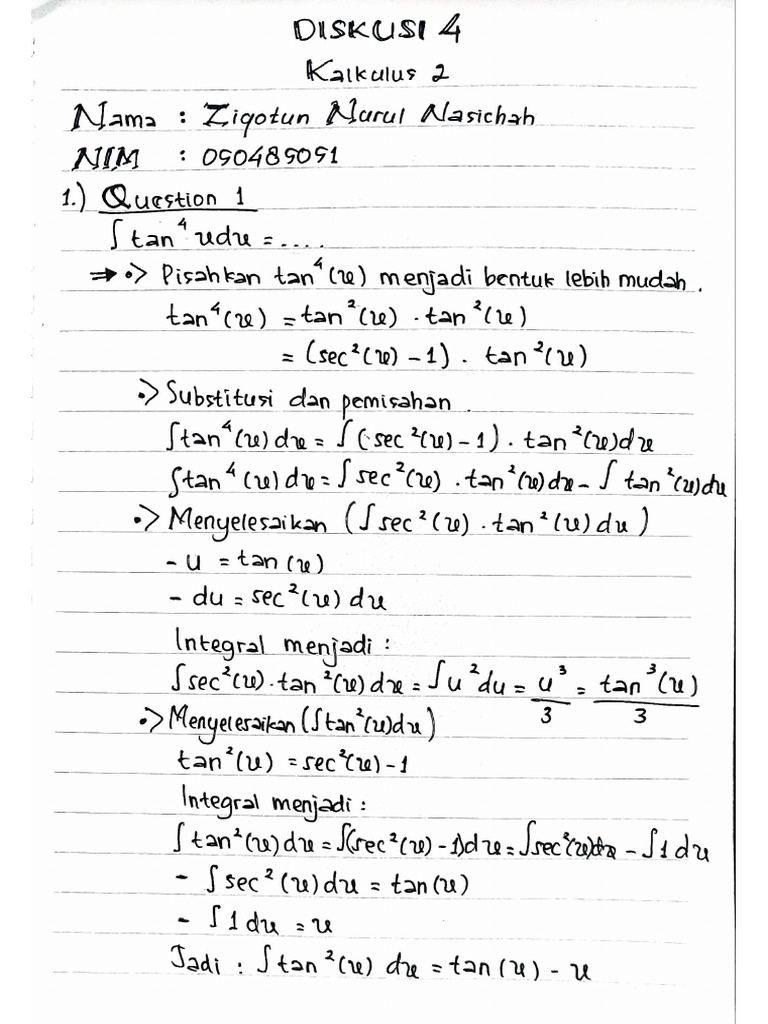 DISKUSI 4
Kalkulus 2
Nama : Ziqotun Nurul Nasichah
NIM : 050485051
1.) Question 1
∫ tan⁴ x dx = ....
⇒ •> Pisahkan tan⁴(x) menjadi bentuk lebih mudah.
tan⁴(x) = tan²(x) . tan²(x)
= (sec²(x) - 1) . tan²(x)
•> Substitusi dan pemisahan.
∫tan⁴(x) dx = ∫(sec²(x) - 1) . tan²(x)dx
∫tan⁴(x)dx = ∫sec²(x) . tan²(x)dx - ∫ tan²(x)dx
•> Menyelesaikan (∫sec²(x) . tan²(x) dx)
- u = tan(x)
- du = sec²(x) dx
Integral menjadi :
∫sec²(x) . tan²(x) dx = ∫u²du = u³/3 = tan³(x)/3
•> Menyelesaikan (∫tan²(x)dx)
tan²(x) = sec²(x) - 1
Integral menjadi :
∫tan²(x)dx = ∫(sec²(x) - 1)dx = ∫sec²(x)dx - ∫1 dx
- ∫sec²(x)dx = tan(x)
- ∫1 dx = x
Jadi : ∫tan²(x) dx = tan(x) - x